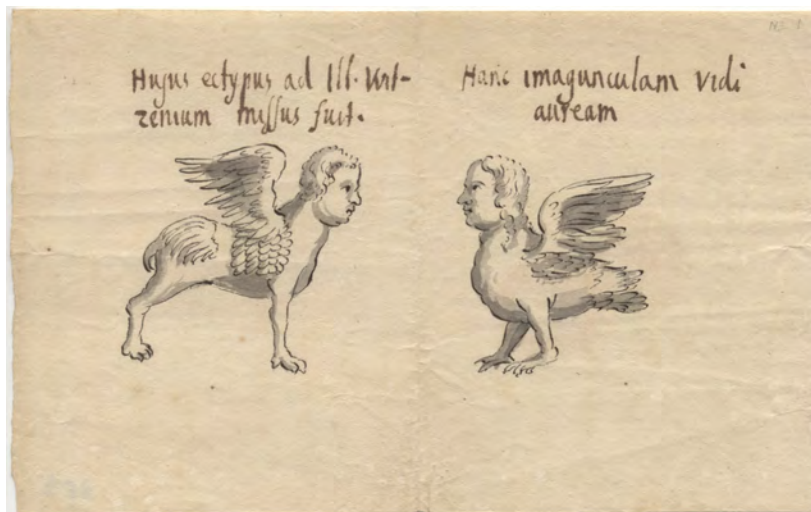 Hujus ectypus ad Ill. Wit-
zenium missus fuit.
Hanc imagunculam vidi
auream